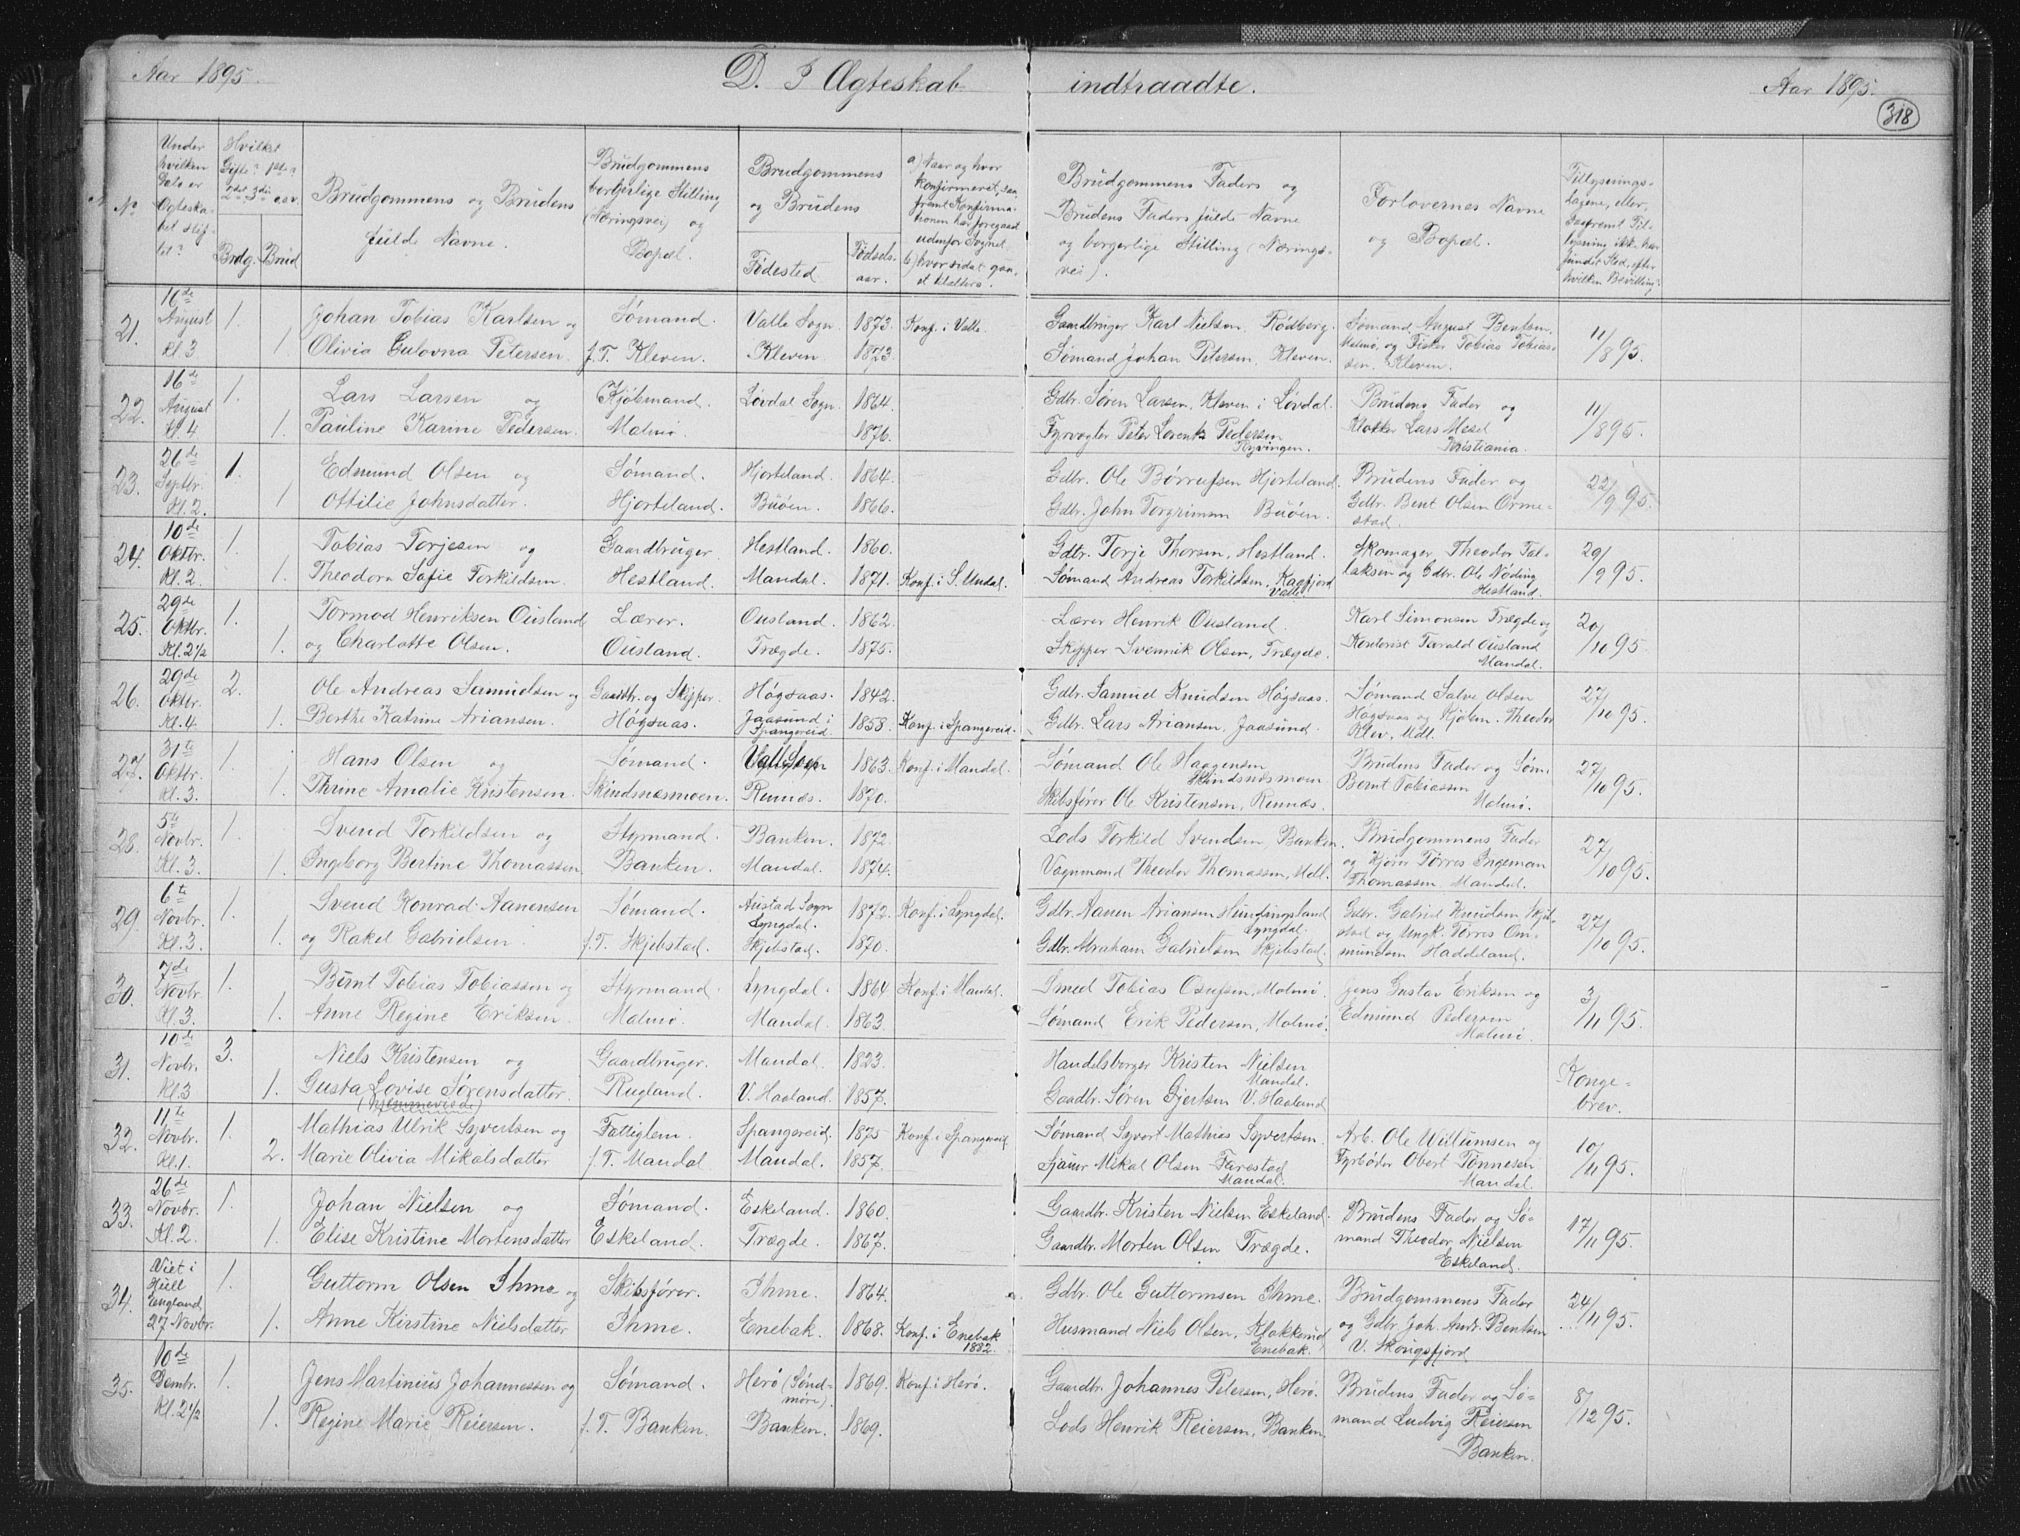 Aar 1895.
D. I Ægteskab indtraadte.
Aar 1895.
318
No
Under hvilken Dato er Ægteskabet stiftet?
Hvilket Gifte? 1ste? 2det 3die osv.
Brdg. Brud
Brudgommens og Brudens fulde Navne.
Brudgommens borgerlige Stilling (Næringsvei) og Bopæl.
Brudgommens og Brudens
Fødested
Fødselsaar.
a) Naar og hvor konfirmeret, saafremt Konfirmationen har foregaaet udenfor Sognet.
b) hvor sidst
Brudgommens Faders og
Brudens Faders fulde Navne
og borgerlige Stilling (Næringsvei).
Forlovernes Navne
og Bopæl.
Tillysnings-
dagene, eller,
saafremt Til-
lysning ikke har
fundet Sted, efter
hvilken Bevilling?
21. 16de August Kl. 3 1. 1
Johan Tobias Karlsen og Sømand. Valle Sogn. 1873. Konf. i Valle. Gaardbruger Karl Nielsen, Rødberg. Sømand August Bentsen,
Olivia Gulovna Petersen. f. T. Kleven. Kleven. 1873. Sømand Johan Petersen. Kleven. Malmø, og Fisker Tobias Tobiassen. Kleven. 11/8 95.
22. 16de August Kl. 4 1. 1.
Lars Larsen og Kjøbmand. Løvdal Sogn. 1864. Gdbr. Søren Larsen, Kleven i Løvdal. Brudens Fader og
Pauline Karine Pedersen. Malmø. 1876. Fyrvogter Peter Lorentz Pedersen Ryvingen. Klokker Lars Mesel Kristiania. 11/8 95.
23. 26de Septbr. Kl. 2. 1. 1
Edmund Olsen og Sømand. Hjorteland. 1864. Gdbr. Ole Børrufsen Hjorteland. Brudens Fader og
Ottilie Johnsdatter. Hjorteland. Buøen. 1866. Gdbr. John Torgrimsen Buøen. Gdbr. Bent Olsen Ormestad. 22/9 95.
24. 10de Oktbr. Kl. 2. 1. 1.
Tobias Torjesen og Gaardbruger. Hestland. 1860. Gdbr. Torje Thorsen, Hestland. Skomager Theodor Tal-
Theodora Sofie Torkildsen. Hestland. Mandal. 1871. Konf. i S. Undal. Sømand Andreas Torkildsen, Kagfjord Valle. laksen og Gdbr. Ole Nøding Hestland. 29/9 95.
25. 29de Oktbr. Kl. 2 1/2 1. 1.
Tormod Henriksen Ousland Lærer. Ousland. 1862. Lærer Henrik Ousland. Karl Simonsen Trægde og
og Charlotte Olsen. Ousland. Trægde. 1875. Skipper Svennik Olsen, Trægde. Kontorist Tarald Ousland Mandal. 20/10 95.
26. 29de Oktbr. Kl. 4. 2. 1.
Ole Andreas Samuelsen og Gaardbr. og Skipper. Høgsaas. 1842. Gdbr. Samuel Knudsen Høgsaas. Sømand Salve Olsen
Berthe Katrine Ariansen. Høgsaas. Jaasund i Spangereid. 1858. Konf. i Spangereid. Gdbr. Lars Ariansen, Jaasund. Høgsaas og Kjøbm. Theodor Klev, Mdl. 27/10 95.
27. 31te Oktbr. Kl. 3. 1. 1.
Hans Olsen og Sømand. Valle Sogn 1863. Konf. i Mandal. Sømand Ole Haagensen Skindsnæsmoen. Brudens Fader og Søm.
Thrine Amalie Kristensen. Skindsnæsmoen. Rennæs. 1870. Skibsfører Ole Kristensen, Rennæs. Bernt Tobiassen Malmø. 27/10 95.
28. 5te Novbr. Kl. 3. 1. 1.
Svend Torkildsen og Styrmand. Banken. 1872. Lods Torkild Svendsen, Banken. Brudgommens Fader
Ingeborg Bertine Thomassen. Banken. Mandal. 1874. Vognmand Theodor Thomassen, Mdl. og Kjører Tørres Ingeman Thomassen, Mandal. 27/10 95.
29. 6te Novbr. Kl. 3. 1. 1.
Svend Konrad Aanensen Sømand. Austad Sogn Lyngdal. 1872. Konf. i Lyngdal. Gdbr. Aanen Ariansen Lyngdal. Gdbr. Gabriel Knudsen Skjeb-
og Rakel Gabrielsen. f. T. Skjebstad. Skjebstad. 1870. Gdbr. Abraham Gabrielsen Skjebstad. stad og Ungk. Tørres Om- mundsen Haddeland. 27/10 95.
30. 7de Novbr. Kl. 3. 1. 1.
Bernt Tobias Tobiassen og Styrmand. Lyngdal. 1864 Konf. i Mandal. Smed Tobias Osufsen, Malmø. Jens Gustav Eriksen og
Anne Regine Eriksen. Malmø. Mandal. 1863. Sømand Erik Pedersen, Malmø. Edmund Pedersen Malmø. 3/11 95.
31. 10de Novbr. Kl. 3 3. 1.
Niels Kristensen og Gaardbruger. Mandal. 1823. Handelsborger Kristen Nielsen Mandal.
Gusta Lovise Sørensdatter. (hjemmeviede) Rugland. V. Haaland. 1857. Gaardbr. Søren Gjertsen V. Haaland Konge-brev.
32. 11te Novbr. Kl. 1. 1. 2.
Mathias Ulrik Syvertsen og Fattiglem. Spangereid. 1875 Konf. i Spangereid Sømand Syvert Mathias Syvertsen. Arb. Ole Willumsen og
Marie Olivia Mikalsdatter f. T. Mandal Mandal. 1857. Sjauer Mikal Olsen Farestad Mandal. Fyrbøder Obert Tønnesen Mandal. 10/11 95.
33. 26de Novbr. Kl. 2. 1. 1.
Johan Nielsen og Sømand. Eskeland. 1860. Gaardbr. Kristen Nielsen Eskeland. Brudens Fader og Sø-
Elise Kristine Mortensdatter Eskeland. Trægde. 1867. Gaardbr. Morten Olsen Trægde. mand Theodor Nielsen Eskeland. 17/11 95.
34. Viet i Hull England, 27 Novbr. 1. 1.
Guttorm Olsen Ihme og Skibsfører. Ihme. 1864. Gdbr. Ole Guttormsen Ihme. Brudgommens Fader
Anne Kirstine Nielsdatter Ihme. Enebak. 1868. Konf. i Enebak 1882. Husmand Niels Olsen, Klokkerud Enebak. og Gdbr. Joh. Andr. Bentsen V. Skougsfjord 24/11 95.
35. 10de Dembr. Kl. 2 1/2 1. 1.
Jens Martinius Johannessen og Sømand. Herø (Søndmøre). 1869. Konf. i Herø. Gaardbr. Johannes Petersen, Herø. Brudens Fader og Sø-
Regine Marie Reiersen. f. T. Banken. Banken. 1869. Lods Henrik Reiersen, Banken. mand Ludvig Reiersen Banken. 8/12 95.